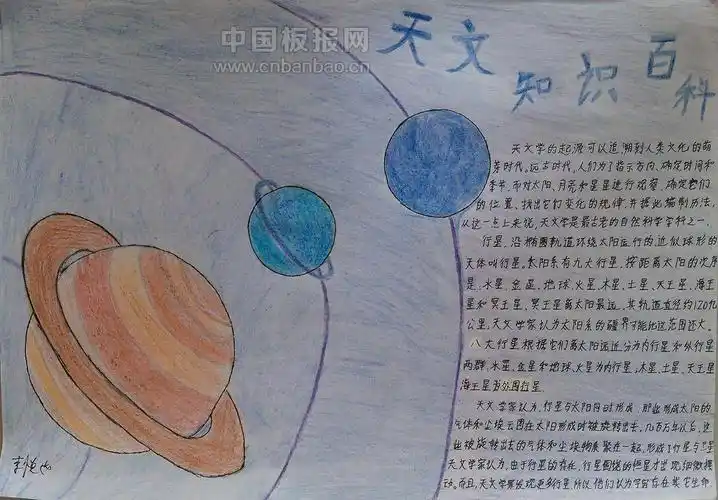 中国板报网
www.cnbanbao.cn
天文
知识百科
天文学的起源可以追溯到人类文化的萌
芽时代。远古时代，人们为了指示方向、确定时间和
季节，而对太阳、月亮和星星进行观察，确定它们
的位置、找出它们变化的规律，并据此编制历法。
从这一点上来说，天文学是最古老的自然科学学科之一。
行星，沿椭圆轨道环绕太阳运行的近似球形的
天体叫行星。太阳系有九大行星，按距离太阳的次序
是，水星、金星、地球、火星、木星、土星、天王星、海王
星和冥王星。冥王星离太阳最远，其轨道直径约120亿
公里。天文学家认为太阳系的疆界可能比这范围还大。
八大行星根据它们离太阳远近分为内行星和外行星
两群，水星、金星和地球、火星为内行星，木星、土星、天王星
海王星为外围行星
天文学家认为，行星与太阳同时形成，那些形成太阳的
气体和尘埃云团在太阳形成时被旋转出去，几百万年以后，这
些被旋转出去的气体和尘埃物质聚在一起，形成了行星与卫星
天文学家认为，由于行星的存在，行星围绕的恒星才出现细微摆
动。而且，天文学家发现更多行星，所以他们认为宇宙存在其它生命。